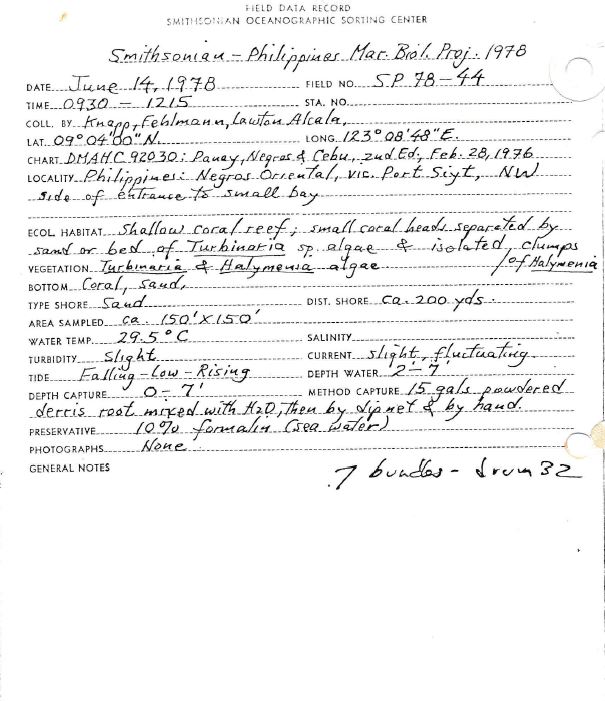 FIELD DATA RECORD
SMITHSONIAN OCEANOGRAPHIC SORTING CENTER
Smithsonian - Philippines Mar. Biol. Proj. 1978
DATE June 14, 1978 FIELD NO. SP 78-44
TIME 0930 - 1215 STA. NO.
COLL. BY Knapp, Fehlmann, Lawton Alcala,
LAT. 09° 04' 00" N. LONG. 123° 08' 48" E.
CHART DMAHC 92030: Panay, Negros & Cebu, 2nd Ed, Feb. 28, 1976
LOCALITY Philippines: Negros Oriental, vic. Port Siyt, NW
side of entrance to small bay
ECOL. HABITAT Shallow coral reef; small coral heads separated by
sand or bed of Turbinaria sp. algae & isolated, clumps
VEGETATION Turbinaria & Halymenia algae / of Halymenia
BOTTOM Coral, sand,
TYPE SHORE Sand DIST. SHORE ca. 200 yds.
AREA SAMPLED ca. 150' X 150'
WATER TEMP. 29.5° C SALINITY
TURBIDITY Slight CURRENT slight, fluctuating
TIDE Falling - Low - Rising DEPTH WATER 2' - 7'
DEPTH CAPTURE 0 - 7' METHOD CAPTURE 15 gals. powdered
derris root mixed with H2O, then by dipnet & by hand.
PRESERVATIVE 10% formalin (sea water)
PHOTOGRAPHS None
GENERAL NOTES 7 bundles - drum 32